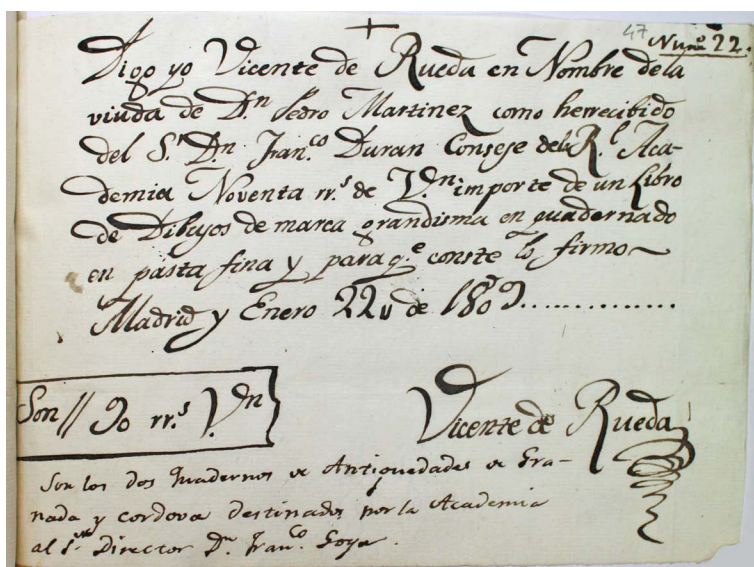 47
Num.º 22.
Digo yo Vicente de Rueda en Nombre dela
viuda de D.n Pedro Martinez como herrecibido
del S.r D.n Fran.co Duran Consege dela R.l Aca-
demia Noventa rr.s de V.n importe de un Libro
de Dibujos de marca grandisma en quadernado
en pasta fina y para q.e conste lo firmo
Madrid y Enero 22 de 1809..............
Son // 90 rr.s V.n
Vicente de Rueda
Son los dos Quadernos de Antiguedades de Gra-
nada y cordova destinados por la Academia
al S.r Director D.n Fran.co Goya.